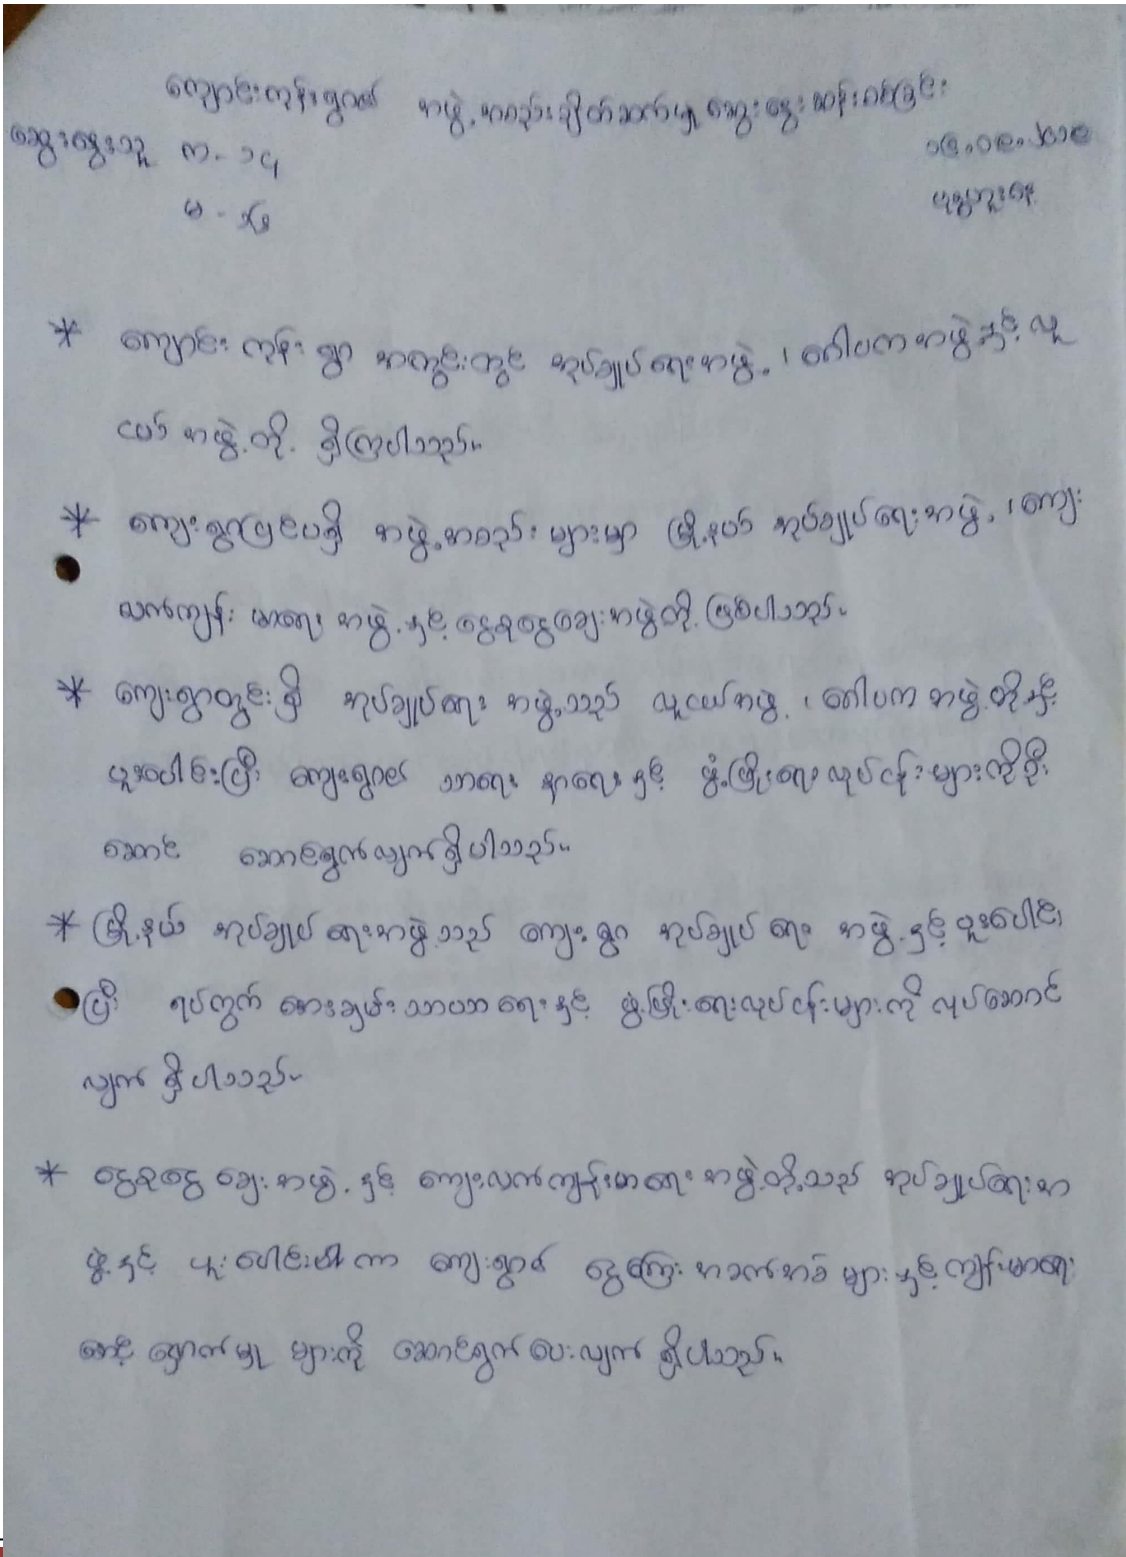 ကျောင်းကုန်းရွာ၏ အဖွဲ့အစည်းချိတ်ဆက်မှု ဆွေးနွေးဆန်းစစ်ခြင်း
ဆွေးနွေးသူ က - ၁၄
မ - ၁၆
ဗုဒ္ဓဟူးနေ့
* ကျောင်းကုန်း ရွာ အတွင်းတွင် အုပ်ချုပ်ရေးအဖွဲ့၊ ဂေါပကအဖွဲ့နှင့် လူ
ငယ် အဖွဲ့တို့ ရှိကြပါသည်။
* ကျေးရွာပြင်ပရှိ အဖွဲ့အစည်း များမှာ မြို့နယ် အုပ်ချုပ်ရေးအဖွဲ့၊ ကျေး
လက်ကျန်း မာရေး အဖွဲ့နှင့် ငွေစုငွေချေးအဖွဲ့တို့ ဖြစ်ပါသည်။
* ကျေးရွာတွင်းရှိ အုပ်ချုပ်ရေး အဖွဲ့သည် လူငယ်အဖွဲ့၊ ဂေါပက အဖွဲ့တို့နှင့်
ပူးပေါင်းပြီး ကျေးရွာ၏ သာရေး နာရေး နှင့် ဖွံ့ဖြိုးရေး လုပ်ငန်းများကိုဦး
ဆောင် ဆောင်ရွက်လျက်ရှိပါသည်။
* မြို့နယ် အုပ်ချုပ် ရေးအဖွဲ့သည် ကျေးရွာ အုပ်ချုပ် ရေး အဖွဲ့နှင့် ပူးပေါင်း
ပြီး ရပ်ရွက် အေးချမ်းသာယာ ရေးနှင့် ဖွံ့ဖြိုးရေးလုပ်ငန်းများကို လုပ်ဆောင်
လျက် ရှိပါသည်။
* ငွေစုငွေ ချေးအဖွဲ့ နှင့် ကျေးလက်ကျန်းမာရေး အဖွဲ့တို့သည် အုပ်ချုပ်ရေးအ
ဖွဲ့နှင့် ပူးပေါင်း ကာ ကျေးရွာ၏ ငွေကြေး အခက်အခဲ များနှင့် ကျန်းမာရေး
စောင့် ရှောက်မှု များကို ဆောင်ရွက် ပေးလျက် ရှိပါသည်။